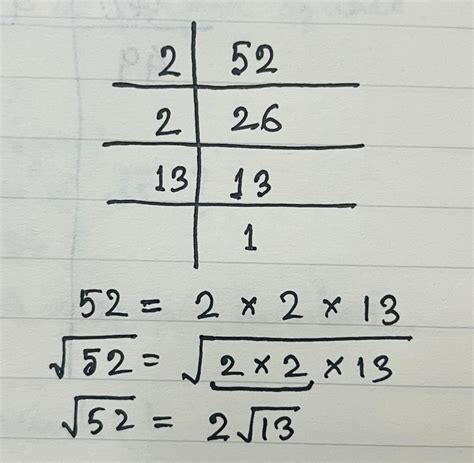 2 | 52
2 | 26
13 | 13
1
52 = 2 × 2 × 13
√52 = √2 × 2 × 13
√52 = 2√13